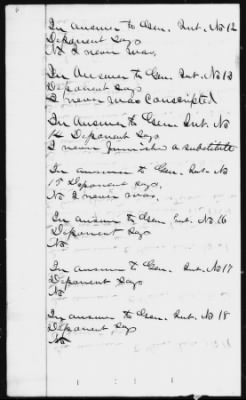 In answer to Gen. Int. No 12
Deponent Says
No I never was.
In Answer to Gen. Int. No 13
Deponent Says
I never was Conscripted
In Answer to Gen. Int. No
14 Deponent Says
I never furnished a substitute
In answer to Gen. Int. No
15 Deponent Says,
No I never was.
In answer to Gen Int. No 16
Deponent Says
No
In answer to Gen. Int. No 17
Deponent Says
No
In answer to Gen. Int. No 18
Deponent Says
No